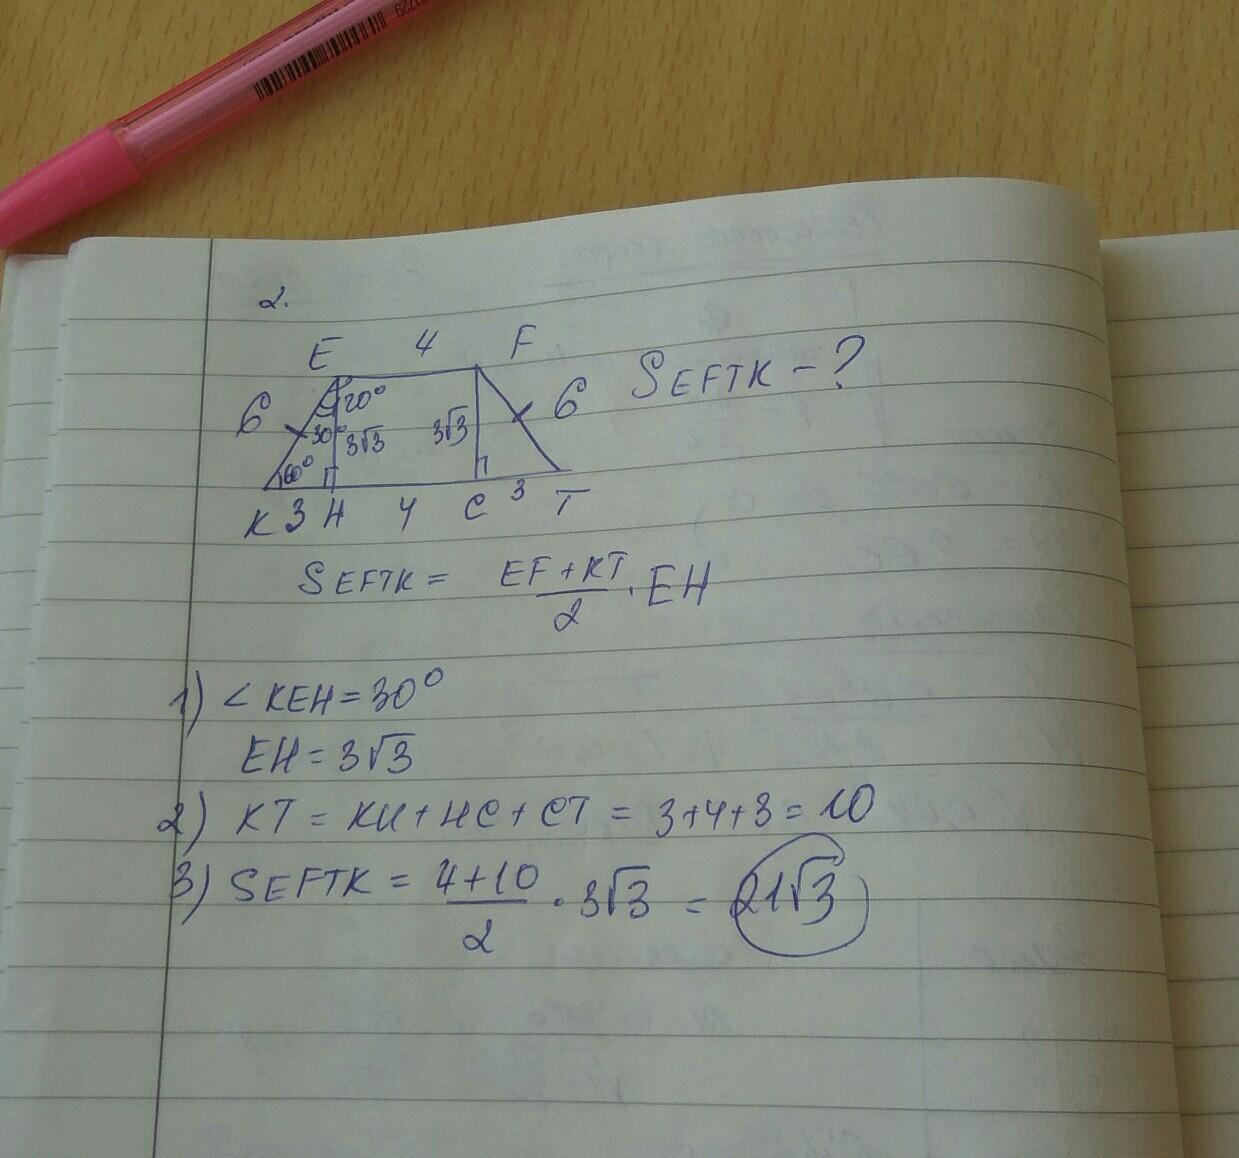 2.
E 4 F
6 120° 6 SEFTK - ?
30° 3√3 3√3
60°
K 3 H 4 C 3 T
SEFTK = EF + KT / 2 · EH
1) < KEH = 30°
EH = 3√3
2) KT = KH + HC + CT = 3+4+3 = 10
3) SEFTK = 4+10 / 2 · 3√3 = 21√3